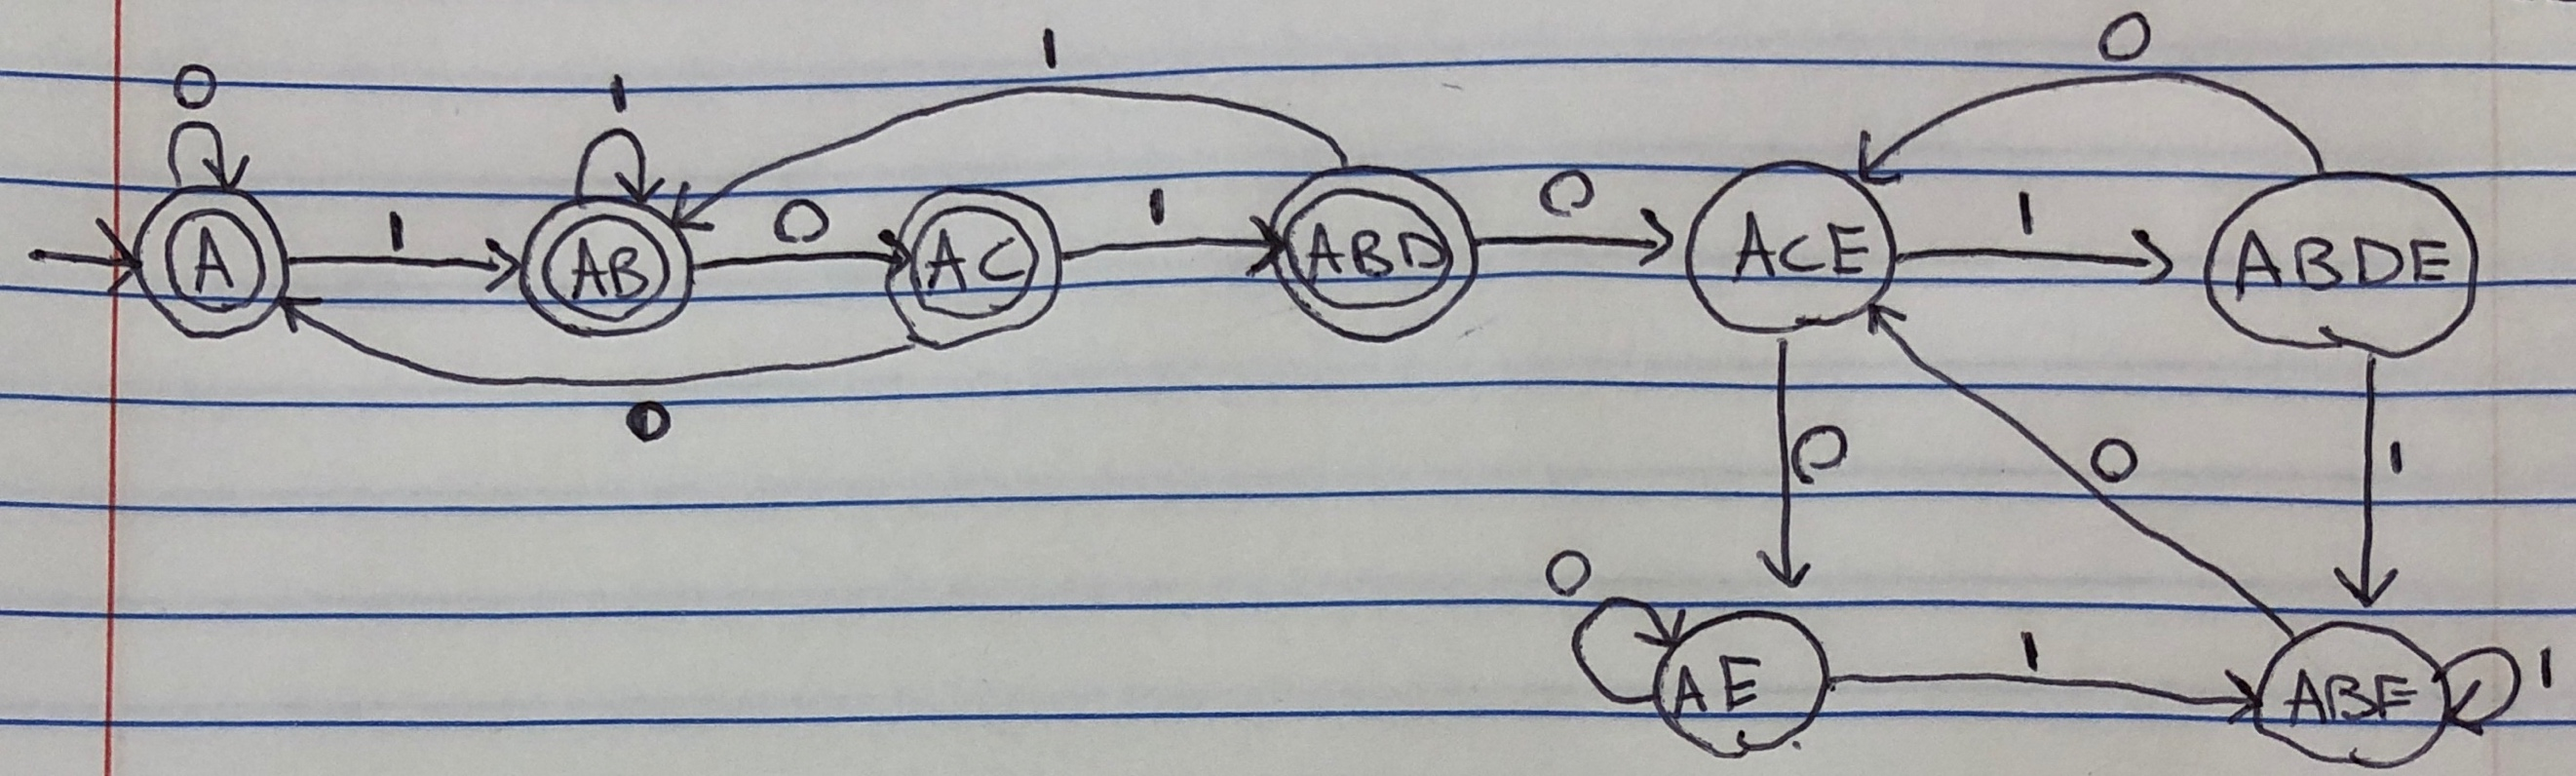 1 0
0 1
A 1 AB 0 AC 1 ABD 0 ACE 1 ABDE
0
0 0 1
0
AE 1 ABE 1